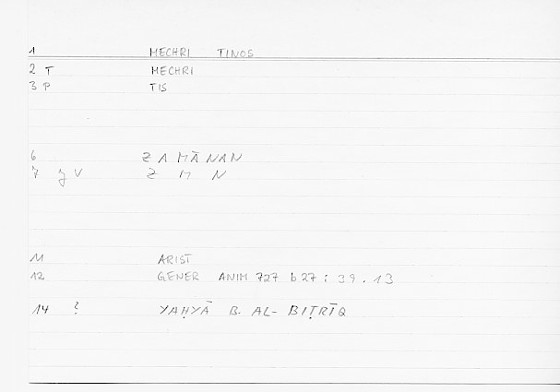 1 MECHRI TINOS
2 T MECHRI
3 P TIS
6 ZAMĀNAN
7 J V Z M N
11 ARIST
12 GENER ANIM 727 b 27 : 39 . 13
14 ? YAḤYĀ B. AL-BIṬRĪQ